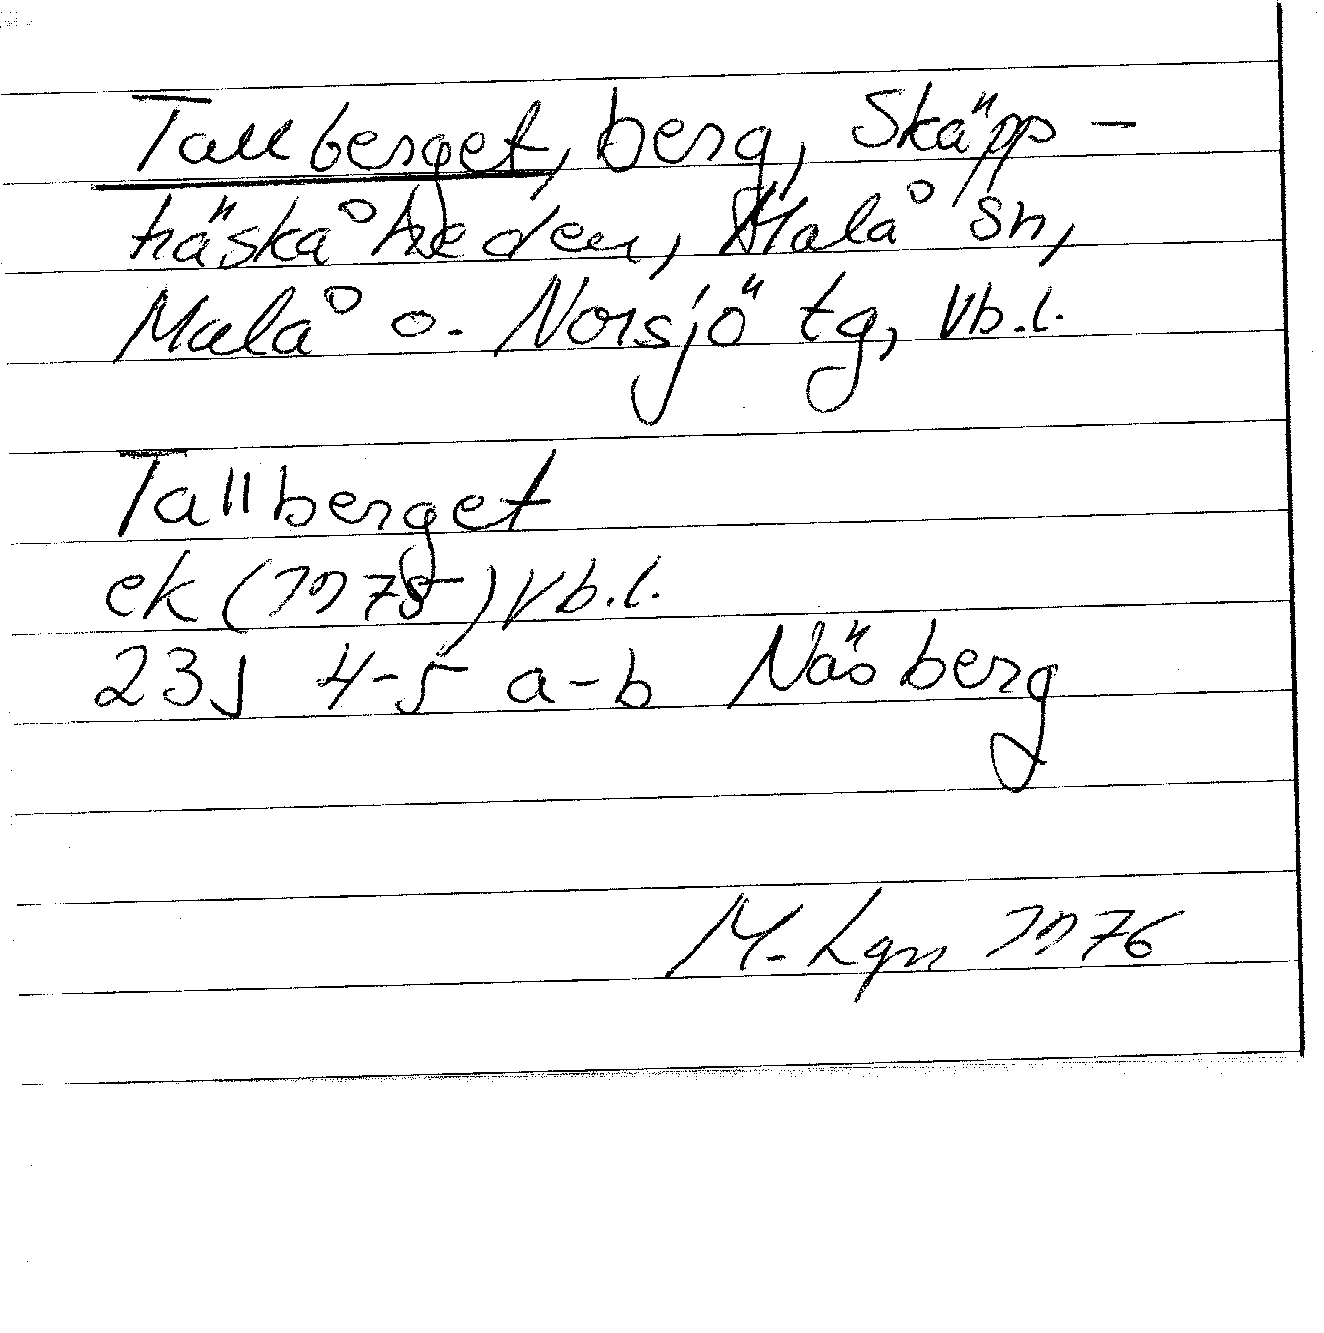 Tallberget, berg, Skäpp-
träskåheden, Malå sn,
Malå o. Norsjö tg, Vb.l.
Tallberget
ek (1975) Vb.l.
23J 4-5 a-b Näsberg
M. Lgn 1976